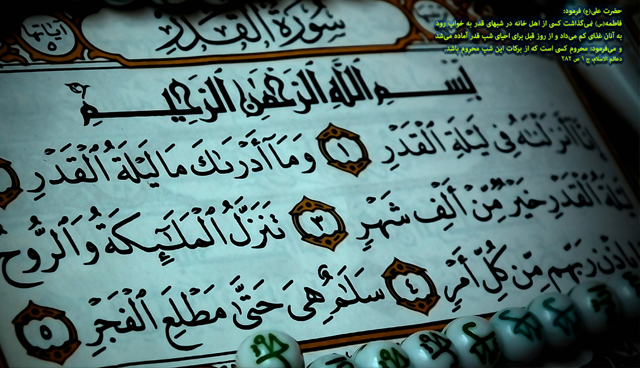 حضرت علی(ع) فرمود:
فاطمه(س) نمی‌گذاشت کسی از اهل خانه در شبهای قدر به خواب رود
به آنان غذای کم می‌داد و از روز قبل برای احیای شب قدر آماده می‌شد
و می‌فرمود: محروم کسی است که از برکات این شب محروم باشد.
دعائم الاسلام، ج ۱ ص ۲۸۲
سُورَةُ الْقَدْرِ
آيَاتُهَا ٥
بِسْمِ اللَّهِ الرَّحْمَٰنِ الرَّحِيمِ
إِنَّا أَنزَلْنَٰهُ فِي لَيْلَةِ الْقَدْرِ ١ وَمَا أَدْرَىٰكَ مَا لَيْلَةُ الْقَدْرِ
لَيْلَةُ الْقَدْرِ خَيْرٌ مِّنْ أَلْفِ شَهْرٍ ٣ تَنَزَّلُ الْمَلَٰٓئِكَةُ وَالرُّوحُ
بِإِذْنِ رَبِّهِم مِّن كُلِّ أَمْرٍ ٤ سَلَٰمٌ هِيَ حَتَّىٰ مَطْلَعِ الْفَجْرِ ٥